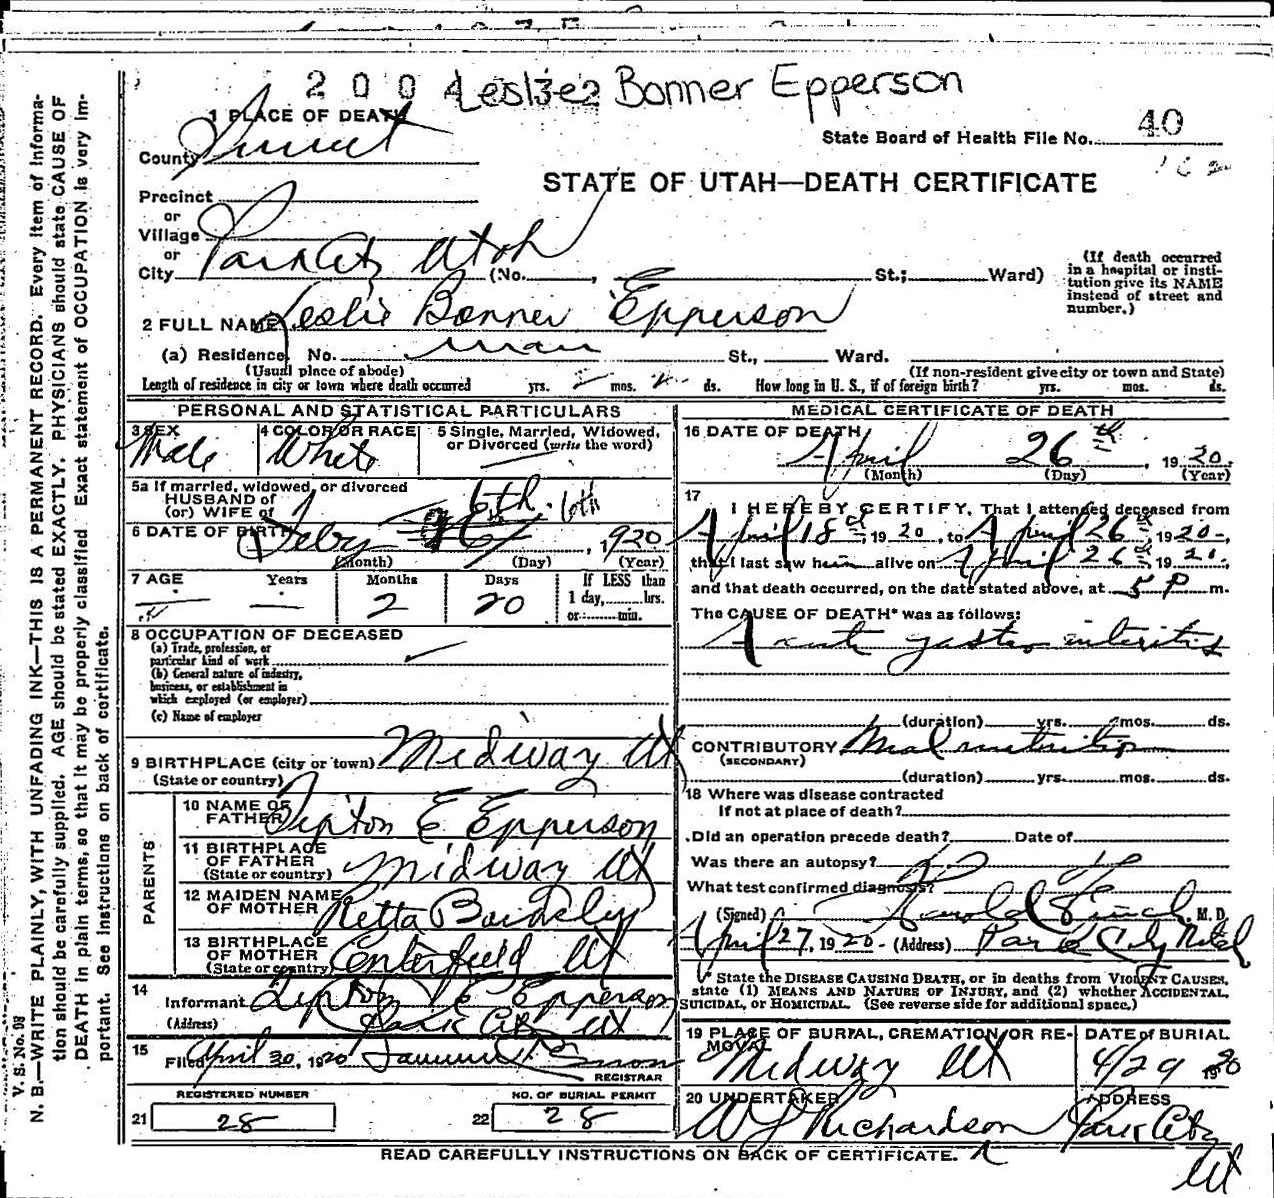 2 0 0 4 Leslie Bonner Epperson
1 PLACE OF DEATH
County Summit
State Board of Health File No. 40
STATE OF UTAH—DEATH CERTIFICATE
Precinct
or
Village
or
City Park City Utah (No. , St.; Ward)
(If death occurred
in a hospital or insti-
tution give its NAME
instead of street and
number.)
2 FULL NAME Leslie Bonner Epperson
(a) Residence, No. St., Ward.
(Usual place of abode) (If non-resident give city or town and State)
Length of residence in city or town where death occurred yrs. 2 mos. ds. How long in U. S., if of foreign birth? yrs. mos. ds.
PERSONAL AND STATISTICAL PARTICULARS
3 SEX 4 COLOR OR RACE 5 Single, Married, Widowed,
or Divorced (write the word)
Male White
5a If married, widowed, or divorced
HUSBAND of
(or) WIFE of
6th. 6th
6 DATE OF BIRTH Feby 16, 1920
(Month) (Day) (Year)
7 AGE Years Months Days If LESS than
1 day, hrs.
or min.
2 20
8 OCCUPATION OF DECEASED
(a) Trade, profession, or
particular kind of work
(b) General nature of industry,
business, or establishment in
which employed (or employer)
(c) Name of employer
9 BIRTHPLACE (city or town) Midway Ut
(State or country)
PARENTS
10 NAME OF
FATHER Tipton E Epperson
11 BIRTHPLACE
OF FATHER
(State or country) Midway Ut
12 MAIDEN NAME
OF MOTHER Retta
13 BIRTHPLACE
OF MOTHER
(State or country) Centerfield Ut
14
Informant Tipton E Epperson
(Address) Park City Ut
15
Filed April 30, 1920
REGISTRAR
REGISTERED NUMBER NO. OF BURIAL PERMIT
21 28 22 28
MEDICAL CERTIFICATE OF DEATH
16 DATE OF DEATH
April 26th, 1920.
(Month) (Day) (Year)
17
I HEREBY CERTIFY, That I attended deceased from
April 18, 1920, to April 26th, 1920,
that I last saw him alive on April 26th 1920,
and that death occurred, on the date stated above, at 5 P m.
The CAUSE OF DEATH* was as follows:
Acute gastro enteritis
(duration) yrs. mos. ds.
CONTRIBUTORY Malnutrition
(SECONDARY)
(duration) yrs. mos. ds.
18 Where was disease contracted
If not at place of death?
Did an operation precede death? Date of
Was there an autopsy?
What test confirmed diagnosis?
(Signed) M. D.
April 27, 1920 (Address) Park City Hotel
* State the DISEASE CAUSING DEATH, or in deaths from VIOLENT CAUSES,
state (1) MEANS AND NATURE OF INJURY, and (2) whether ACCIDENTAL,
SUICIDAL, or HOMICIDAL. (See reverse side for additional space.)
19 PLACE OF BURIAL, CREMATION, OR RE-
MOVAL
Midway Ut
DATE of BURIAL
4/29 1920
20 UNDERTAKER
W J Richardson
ADDRESS
Park City
Ut
READ CAREFULLY INSTRUCTIONS ON BACK OF CERTIFICATE.
V. S. No. 98
N. B.—WRITE PLAINLY, WITH UNFADING INK—THIS IS A PERMANENT RECORD. Every item of informa-
tion should be carefully supplied. AGE should be stated EXACTLY. PHYSICIANS should state CAUSE OF
DEATH in plain terms, so that it may be properly classified. Exact statement of OCCUPATION is very im-
portant. See instructions on back of certificate.